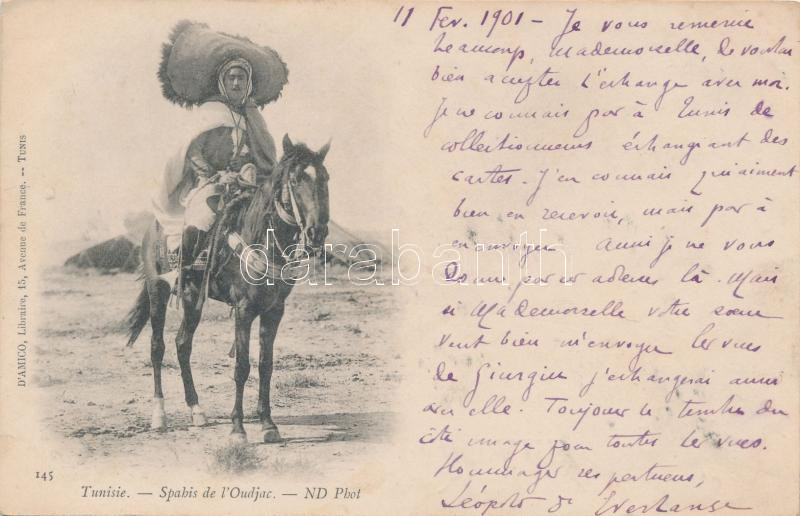 11 Fev. 1901 - Je vous remercie
beaucoup, Mademoiselle, de vouloir
bien accepter l'échange avec moi.
Je ne connais pas à Tunis de
collectionneurs échangeant des
cartes. J'en connais qui aiment
bien en recevoir, mais pas à
en envoyer aussi je ne vous
donne pas ces adresses là. Mais
si Mademoiselle votre soeur
veut bien m'envoyer les vues
de Giurgiu j'échangerai aussi
avec elle. Toujours le timbre du
côté image pour toutes les vues.
Hommages respectueux,
Léopold d'
D'AMICO, Libraire, 15, Avenue de France. -- TUNIS
darabanth
145
Tunisie. — Spahis de l'Oudjac. — ND Phot